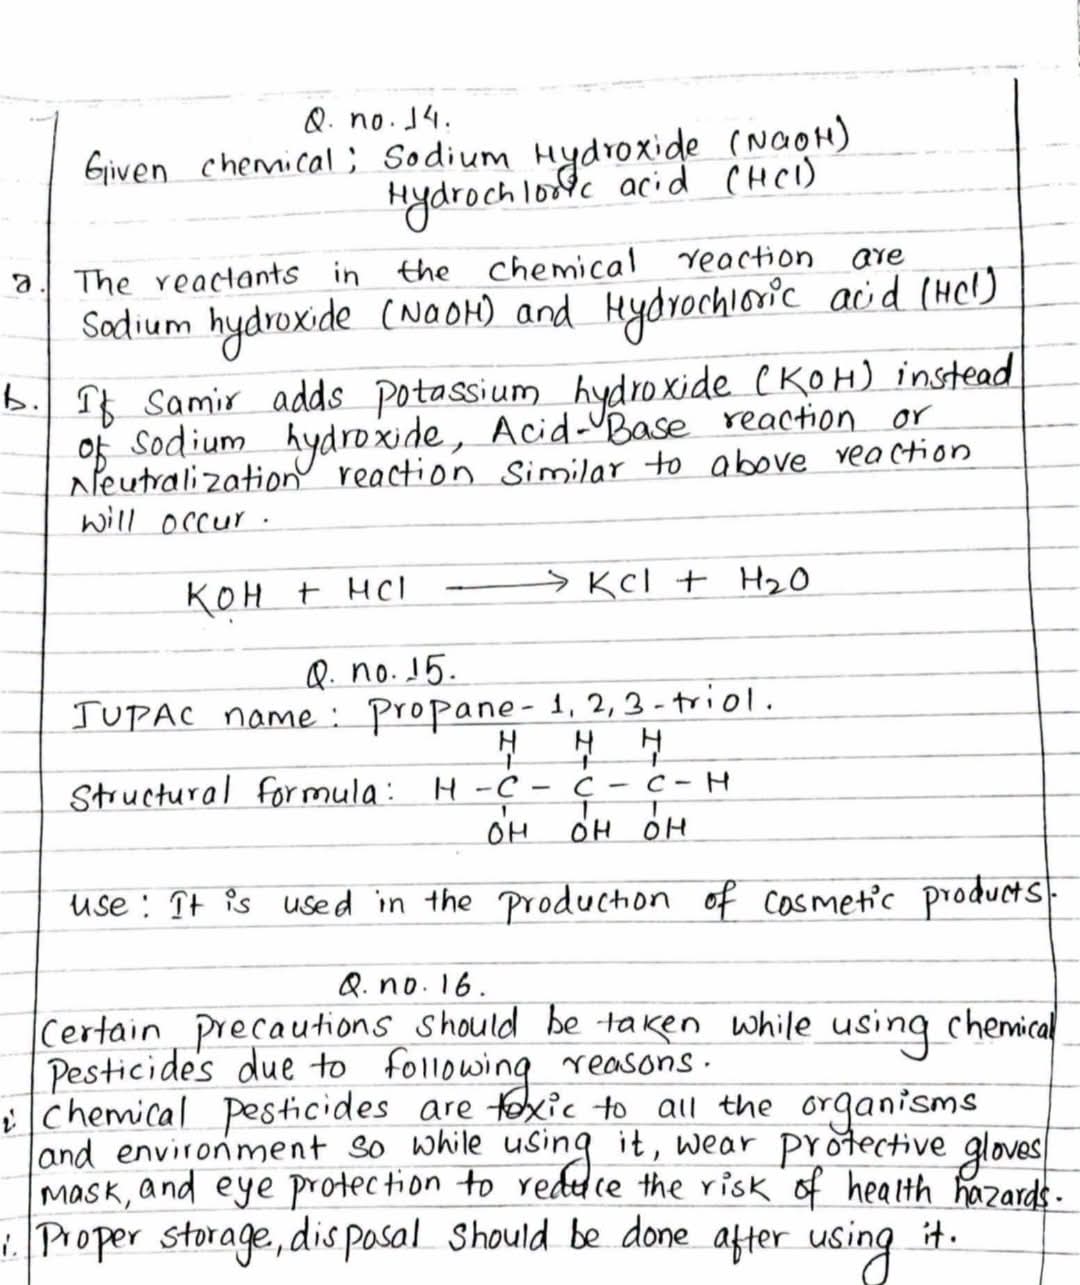 Q. no. 14.
Given chemical; Sodium Hydroxide (NaOH)
Hydrochloric acid (HCl)
a. The reactants in the chemical reaction are
Sodium hydroxide (NaOH) and Hydrochloric acid (HCl)
b. If Samir adds potassium hydroxide (KOH) instead
of sodium hydroxide, Acid-Base reaction or
Neutralization reaction similar to above reaction
will occur.
KOH + HCl ⟶ KCl + H2O
Q. no. 15.
IUPAC name: propane-1,2,3-triol.
H H H
Structural formula: H - C - C - C - H
OH OH OH
use: It is used in the production of cosmetic products.
Q. no. 16.
Certain precautions should be taken while using chemical
Pesticides due to following reasons.
i Chemical pesticides are toxic to all the organisms
and environment so while using it, wear protective gloves
mask, and eye protection to reduce the risk of health hazards.
i. Proper storage, disposal should be done after using it.